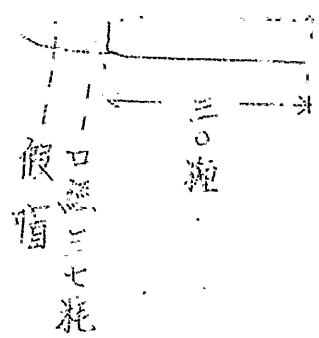 三〇糎
口徑三七粍
假帽